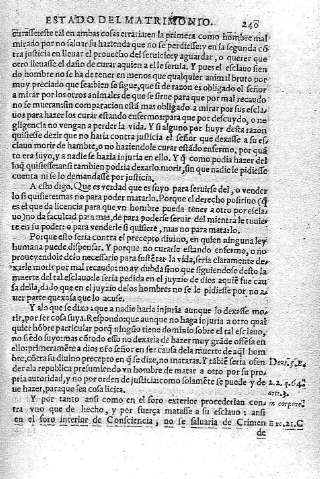 ESTADO DEL MATRIMONIO. 240
curasse este tal en ambas cosas erraria en la primera como hombre mal
mirado por no saluar su hazienda que no se perdiesse y en la segunda cō
tra justicia en lleuar el prouecho del seruicio y aguardar, o querer que
otro lleuasse el daño de curar aquien a el le seruia. Y pues el esclauo sien
do hombre no se ha de tener en menos que qualquier animal bruto por
muy preciado que sea bien se sigue, que si de razon es obligado el señor
a mirar por los otros animales de que se sirue para que por mal recaudo
no se mueran: sin comparacion está mas obligado a mirar por sus escla-
uos para hazer los curar estando enfermos para que por descuydo, o ne
gligencia no vengan a perder la vida. Y si alguno por huyr desta razon
quisiesse dezir que no haria contra justicia el señor que dexasse a su es-
clauo morir de hambre, o no haziendole curar estādo enfermo, por quā
to era suyo, y a nadie hazia injuria en ello. Y q̄ como podia hazer del
lo q̄ quisiesse assi tambien podria dexarlo morir, sin que nadie le pidiesse
cuenta ni se lo demandasse por justicia.
A esto digo, Que es verdad que es suyo para seruirse del, o vender
lo si quisiere mas no para poder matarlo. Porque el derecho positiuo (q̄
es el que da licencia para que vn hombre pueda tener a otro por escla-
uo) no da facultad para mas, de para poderse seruir del mientra le tuuie-
re en su poder: o para venderle si quisiere, mas no para matarlo.
Porque esto seria contra el precepto diuino, en quien ninguna ley
humana puede dispensar. Y porque no curarle estando enfermo, o no
proueyendole de lo necessario para sustētar la vida, seria claramente de-
xarle morir por mal recaudo: no ay dubda sino que siguiendose desto la
muerte del tal esclauo le seria pedida en el juyzio de dios aquiē fue cau-
sa della, dado que en el juyzio de los hombres no se le pidiesse por no a-
uer parte quexosa que lo acuse.
Y a lo que se dixo que a nadie haria injuria aunque lo dexasse mo-
rir, por ser cosa suya. Respondo que aunque no haga injuria a otro qual
quier hōbre particular porq̄ ninguno tiene dominio sobre el tal esclauo,
no siēdo suyo: mas cō todo esso no dexaria de hazer muy grāde offensa en
ello primeramēte a dios nr̄o señor en ser causa de la muerte de aq̄l hom
bre, cōtra su diuino precepto en q̄ se dize, no mataras. Y tābiē seria ofen
der a la republica presumiendo vn hombre de matar a otro por su pro-
pria autoridad, y no por orden de justicia: como solamēte se puede y de
ue hazer, para que sea cosa licita.
Y por tanto ansi como en el foro exterior procederian con
tra vno que de hecho, y por fuerça matasse a su esclauo: ansi
en el foro interior de Consciencia, no se saluaria de Crimen
de
Deu. 5. E.
2. 2. q. 64.
artic. 3.
in corpore.
Exo. 21. C